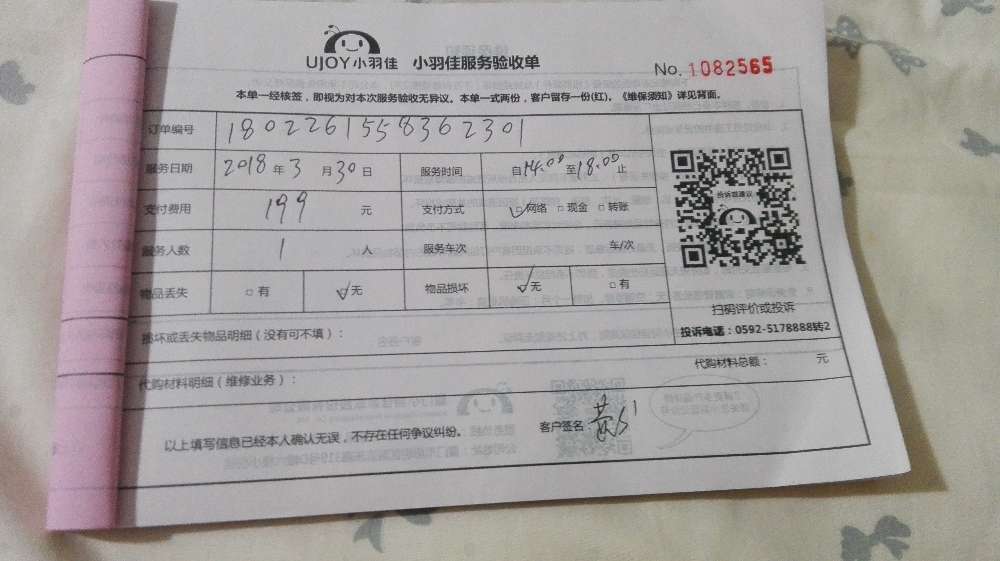 UJOY小羽佳 小羽佳服务验收单
No. 1082565
本单一经核签，即视为对本次服务验收无异议。本单一式两份，客户留存一份(红)，《维保须知》详见背面。
订单编号 1802261558362301
服务日期 2018年3月30日 服务时间 自14:00至18:00止
支付费用 199 元 支付方式 ☑网络 □现金 □转账
服务人数 1 人 服务车次 车/次
物品丢失 □有 ☑无 物品损坏 ☑无 □有
投诉或建议
扫码评价或投诉
投诉电话：0592-5178888转2
损坏或丢失物品明细（没有可不填）：
代购材料明细（维修业务）： 代购材料总额： 元
以上填写信息已经本人确认无误，不存在任何争议纠纷。 客户签名：